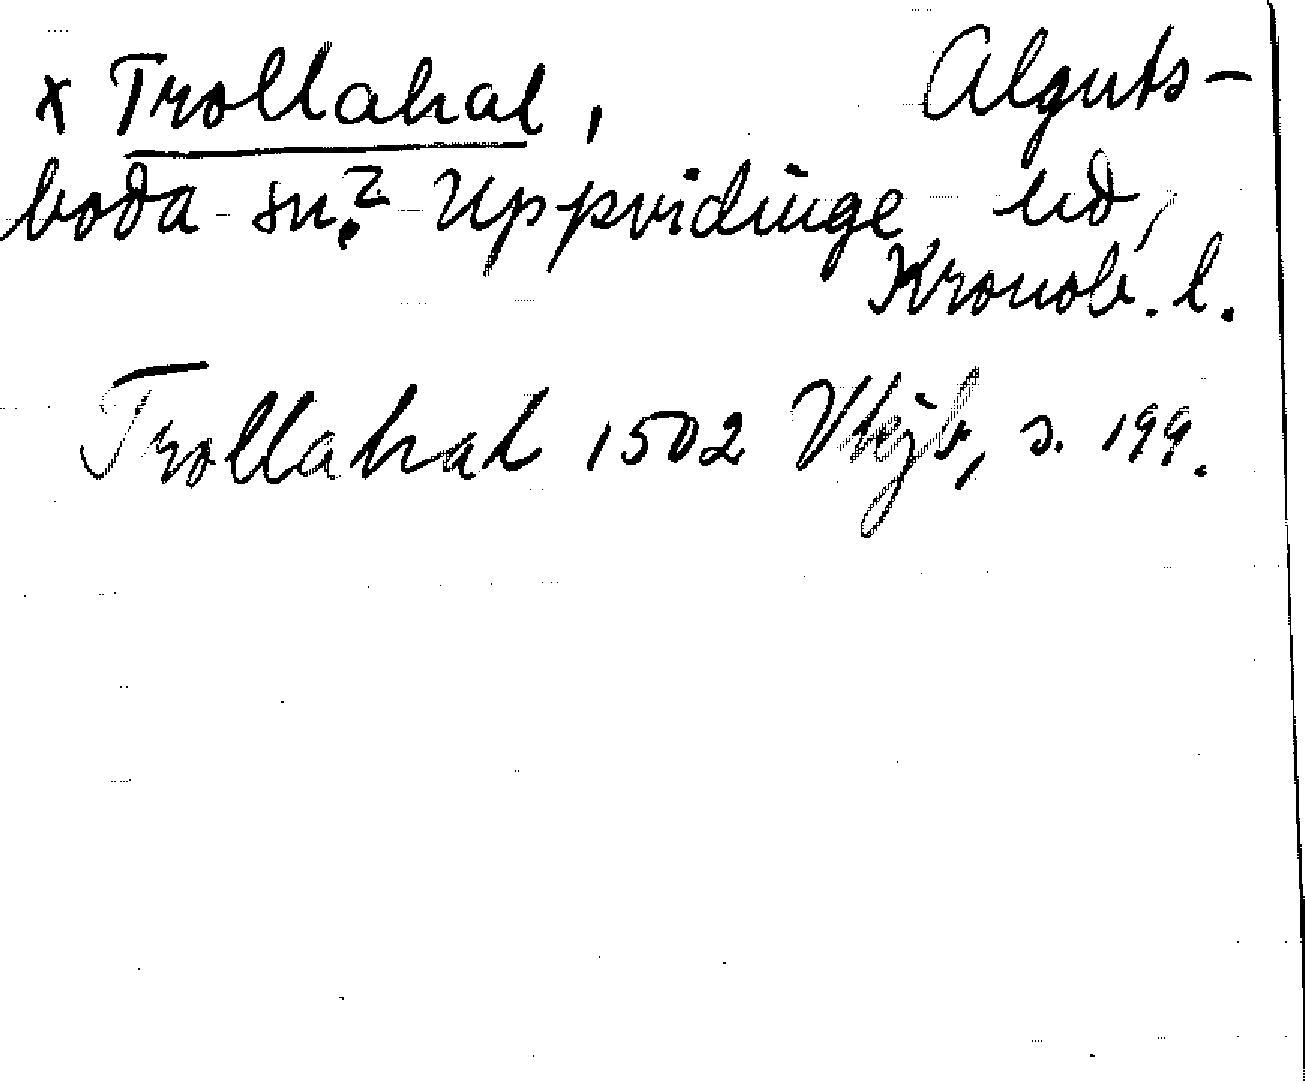 x Trollahal, Alguts-
boda sn? Uppvidinge hd,
Kronob. l.
Trollahal 1502 Vkjb, s. 199.